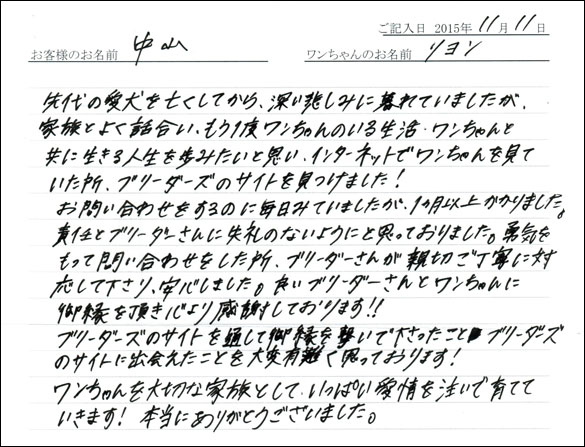 ご記入日 2015年 11月 11日
お客様のお名前 中山 ワンちゃんのお名前 リヨン
先代の愛犬を亡くしてから、深い悲しみに暮れていましたが、
家族とよく話合い、もう1度ワンちゃんのいる生活・ワンちゃんと
共に生きる人生を歩みたいと思い、インターネットでワンちゃんを見て
いた所、ブリーダーズのサイトを見つけました!
お問い合わせをするのに毎日みていましたが、1ヵ月以上かかりました。
責任とブリーダーさんに失礼のないようにと思っておりました。勇気を
もって問い合わせをした所、ブリーダーさんが親切ご丁寧に対
応して下さり、安心しました。良いブリーダーさんとワンちゃんに
御縁を頂き心より感謝しております!!
ブリーダーズのサイトを通して御縁を繋いで下さったこと ブリーダーズ
のサイトに出会えたことを大変有難く思っております!
ワンちゃんを大切な家族として、いっぱい愛情を注いで育てて
いきます! 本当にありがとうございました。